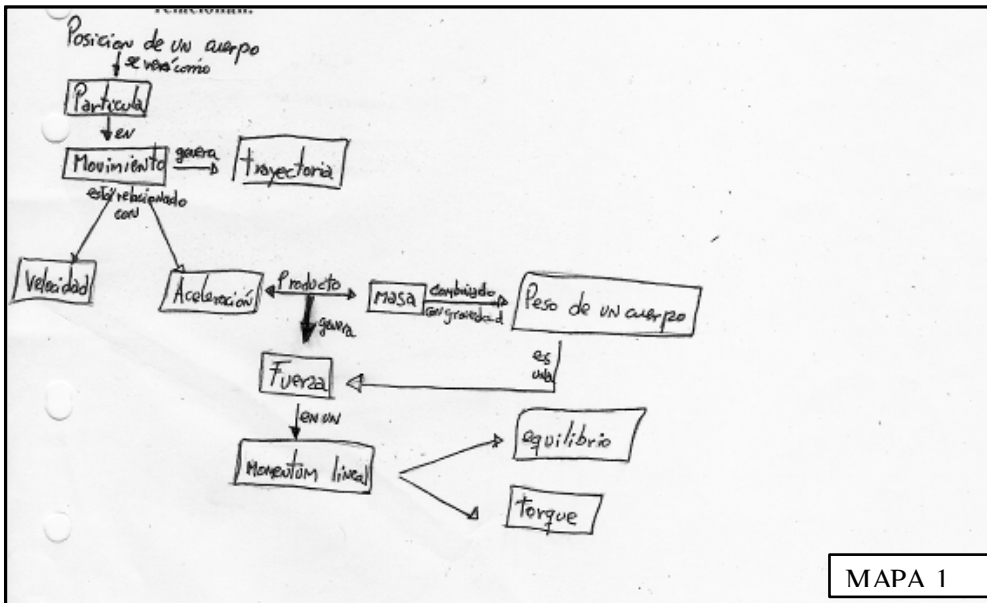 relacionan.
Posicion de un cuerpo
se verá como
Particula
en
Movimiento
genera
trayectoria
está relacionado
con
Velocidad
Aceleración
Producto
genera
masa
combinado
con gravedad
Peso de un cuerpo
es
una
Fuerza
en un
Momentum lineal
equilibrio
torque
MAPA 1